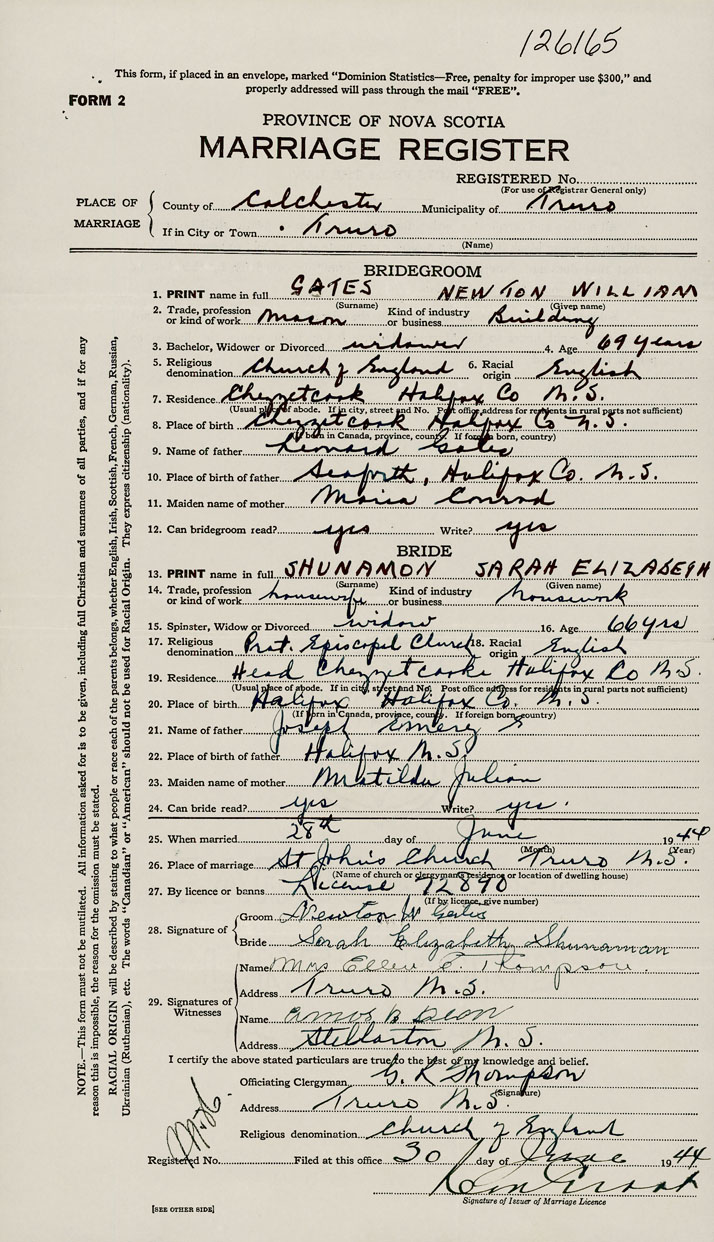 126165
This form, if placed in an envelope, marked "Dominion Statistics—Free, penalty for improper use $300," and
properly addressed will pass through the mail "FREE".
FORM 2
PROVINCE OF NOVA SCOTIA
MARRIAGE REGISTER
REGISTERED No.
(For use of Registrar General only)
PLACE OF MARRIAGE
County of Colchester Municipality of Truro
If in City or Town Truro
(Name)
BRIDEGROOM
1. PRINT name in full GATES NEWTON WILLIAM
(Surname) (Given name)
2. Trade, profession or kind of work Mason Kind of industry or business Building
3. Bachelor, Widower or Divorced widower 4. Age 69 years
5. Religious denomination Church of England 6. Racial origin English
7. Residence Chezzetcook Halifax Co N.S.
(Usual place of abode. If in city, street and No. Post office address for residents in rural parts not sufficient)
8. Place of birth Chezzetcook Halifax Co N.S.
(If born in Canada, province, county. If foreign born, country)
9. Name of father Leonard Gates
10. Place of birth of father Seaforth, Halifax Co. N.S.
11. Maiden name of mother Maria Conrod
12. Can bridegroom read? yes Write? yes
BRIDE
13. PRINT name in full SHUNAMON SARAH ELIZABETH
(Surname) (Given name)
14. Trade, profession or kind of work housewife Kind of industry or business housework
15. Spinster, Widow or Divorced widow 16. Age 66 yrs
17. Religious denomination Prot. Episcopal Church 18. Racial origin English
19. Residence Head Chezzetcooke Halifax Co N.S.
(Usual place of abode. If in city, street and No. Post office address for residents in rural parts not sufficient)
20. Place of birth Halifax Halifax Co. N.S.
(If born in Canada, province, county. If foreign born, country)
21. Name of father Joseph Emery
22. Place of birth of father Halifax N.S.
23. Maiden name of mother Matilda Julian
24. Can bride read? yes Write? yes.
25. When married 28th day of June 1944
(Month) (Year)
26. Place of marriage St John's Church Truro N.S.
(Name of church or clergyman's residence or location of dwelling house)
27. By licence or banns License 12890
(If by licence, give number)
28. Signature of
Groom Newton W Gates
Bride Sarah Elizabeth Shunaman
29. Signatures of Witnesses
Name Mrs Ellen E. Thompson.
Address Truro N.S.
Name Amos B Dean
Address Stellarton N.S.
I certify the above stated particulars are true to the best of my knowledge and belief.
Officiating Clergyman G. R Thompson
(Signature)
Address Truro N.S.
Religious denomination Church of England
Registered No. Filed at this office 30 day of June 1944
Signature of Issuer of Marriage Licence
[SEE OTHER SIDE]
NOTE.—This form must not be mutilated. All information asked for is to be given, including full Christian and surnames of all parties, and if for any
reason this is impossible, the reason for the omission must be stated.
RACIAL ORIGIN will be described by stating to what people or race each of the parents belongs, whether English, Irish, Scottish, French, German, Russian,
Ukrainian (Ruthenian), etc. The words "Canadian" or "American" should not be used for Racial Origin. They express citizenship (nationality).